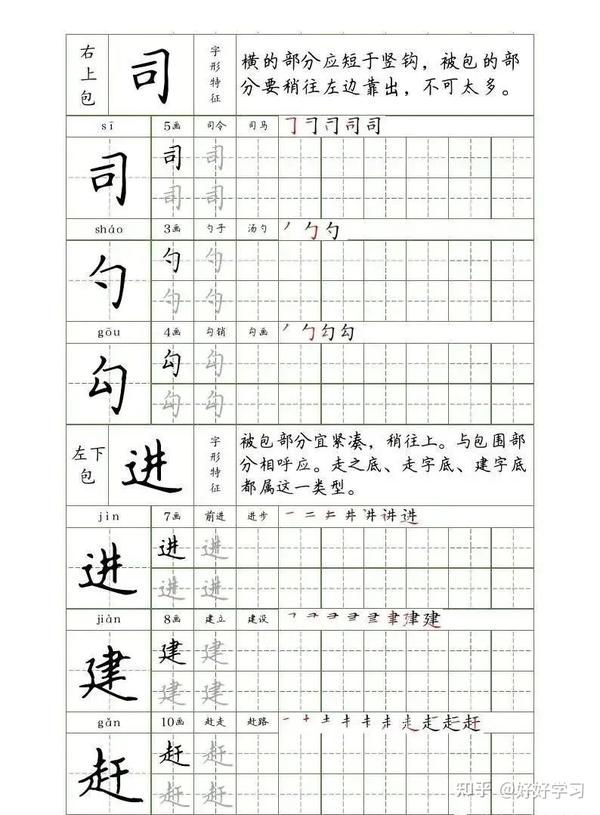 右上包
司
字形特征
横的部分应短于竖钩，被包的部
分要稍往左边靠出，不可太多。
sī 5画 司令 司马
司 司 司
司 司
sháo 3画 勺子 汤勺
勺 勺 勺
勺 勺
gōu 4画 勾销 勾画
勾 勾 勾
勾 勾
左下包
进
字形特征
被包部分宜紧凑，稍往上。与包围部
分相呼应。走之底、走字底、建字底
都属这一类型。
jìn 7画 前进 进步
进 进 进
进 进
jiàn 8画 建立 建设
建 建 建
建 建
gǎn 10画 赴走 赴路
赶 赶 赶
赶 赶
知乎 @好好学习